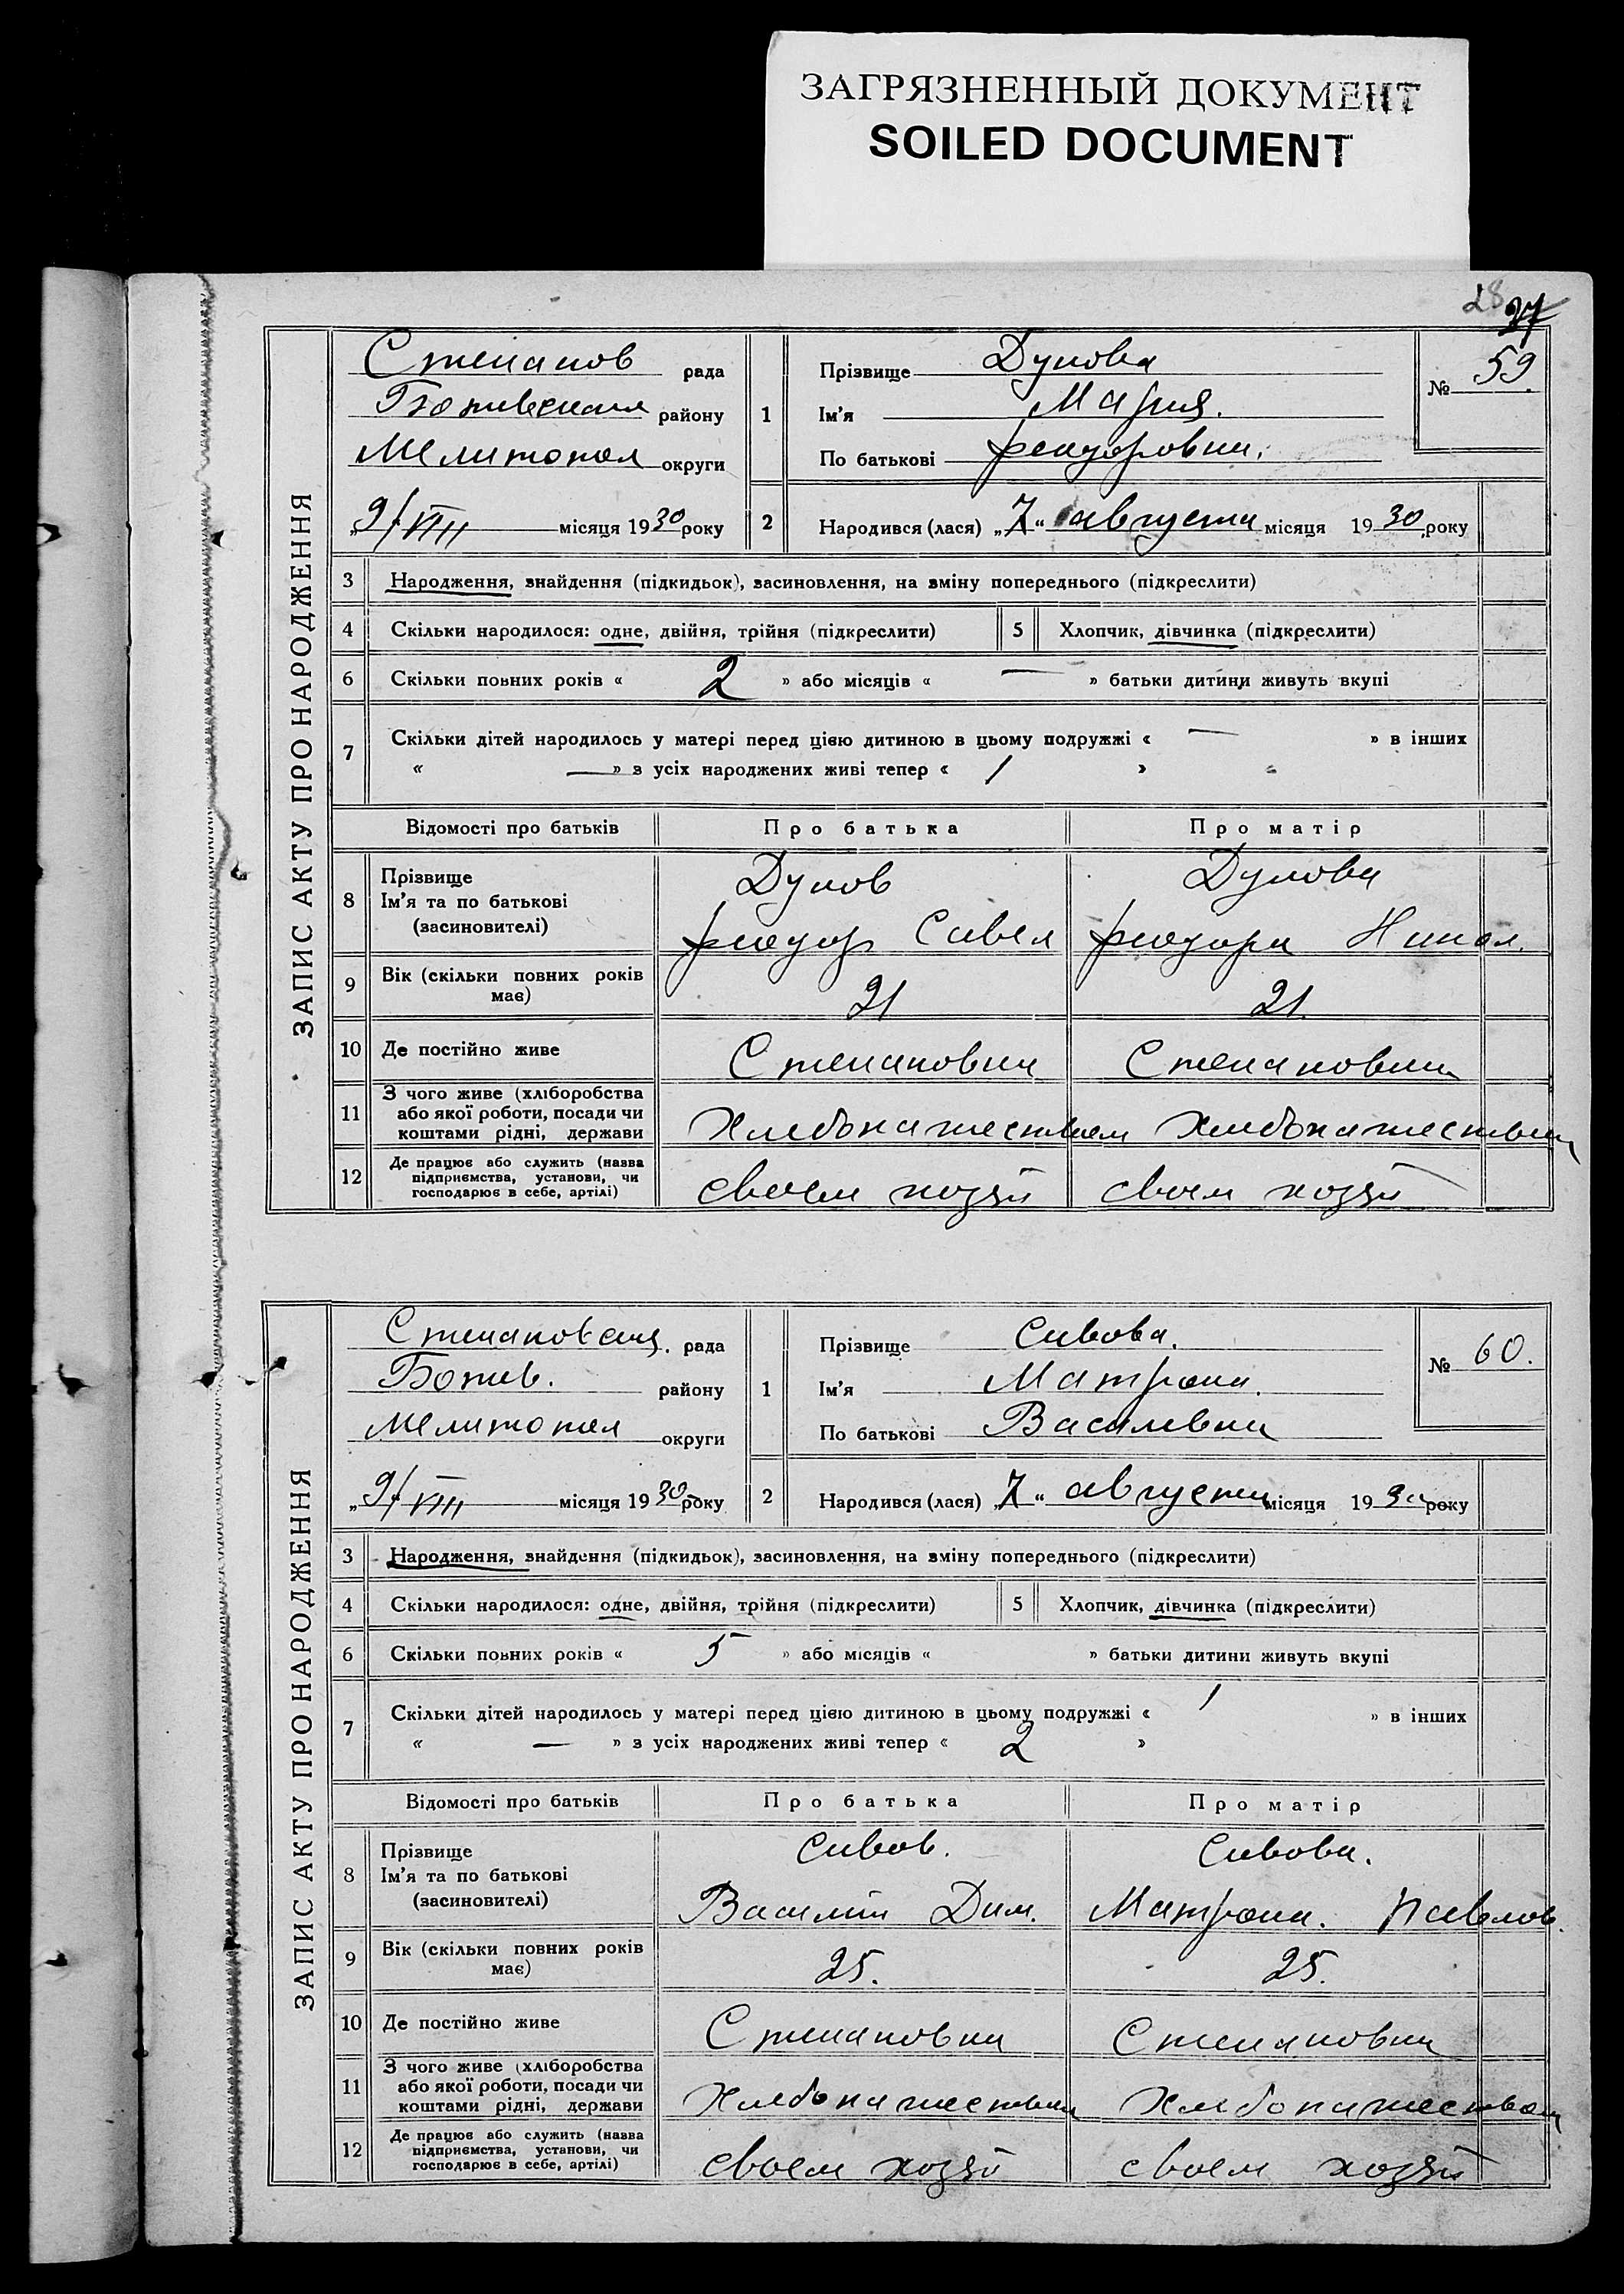 ЗАГРЯЗНЕННЫЙ ДОКУМЕНТ
SOILED DOCUMENT
28 27
ЗАПИС АКТУ ПРО НАРОДЖЕННЯ
Степанов рада
Ботивская району
Мелитопол округи
„9/VIII місяця 1930 року
1 Прізвище Дунова
Ім'я Мария.
По батькові Феодоровна.
№ 59.
2 Народився (лася) „7“ августа місяця 1930 року
3 Народження, знайдення (підкидьок), засиновлення, на зміну попереднього (підкреслити)
4 Скільки народилося: одне, двійня, трійня (підкреслити) 5 Хлопчик, дівчинка (підкреслити)
6 Скільки повних років « 2 » або місяців « — » батьки дитини живуть вкупі
7 Скільки дітей народилось у матері перед цією дитиною в цьому подружжі « — » в інших
« — » з усіх народжених живі тепер « 1 »
Відомості про батьків Про батька Про матір
8 Прізвище Ім'я та по батькові (засиновителі) Дунов Дунова
Феодор Савел Феодора Никол.
9 Вік (скільки повних років має) 21 21.
10 Де постійно живе Степановка Степановка
11 З чого живе (хліборобства або якої роботи, посади чи коштами рідні, держави Хлебопашеством Хлебопашеством
12 Де працює або служить (назва підприємства, установи, чи господарює в себе, артілі) своем хозяй своем хозяй
ЗАПИС АКТУ ПРО НАРОДЖЕННЯ
Степановская. рада
Ботив. району
Мелитопол округи
„9/VIII місяця 1930 року
1 Прізвище Сивова.
Ім'я Матрона.
По батькові Василевна
№ 60.
2 Народився (лася) „7“ августа місяця 1930 року
3 Народження, знайдення (підкидьок), засиновлення, на зміну попереднього (підкреслити)
4 Скільки народилося: одне, двійня, трійня (підкреслити) 5 Хлопчик, дівчинка (підкреслити)
6 Скільки повних років « 5 » або місяців « » батьки дитини живуть вкупі
7 Скільки дітей народилось у матері перед цією дитиною в цьому подружжі « 1 » в інших
« — » з усіх народжених живі тепер « 2 »
Відомості про батьків Про батька Про матір
8 Прізвище Ім'я та по батькові (засиновителі) Сивов. Сивова.
Василий Дим. Матрона. Павлов.
9 Вік (скільки повних років має) 25. 25.
10 Де постійно живе Степановка Степановка
11 З чого живе (хліборобства або якої роботи, посади чи коштами рідні, держави Хлебопашеством Хлебопашеством
12 Де працює або служить (назва підприємства, установи, чи господарює в себе, артілі) своем хозяй своем хозяй